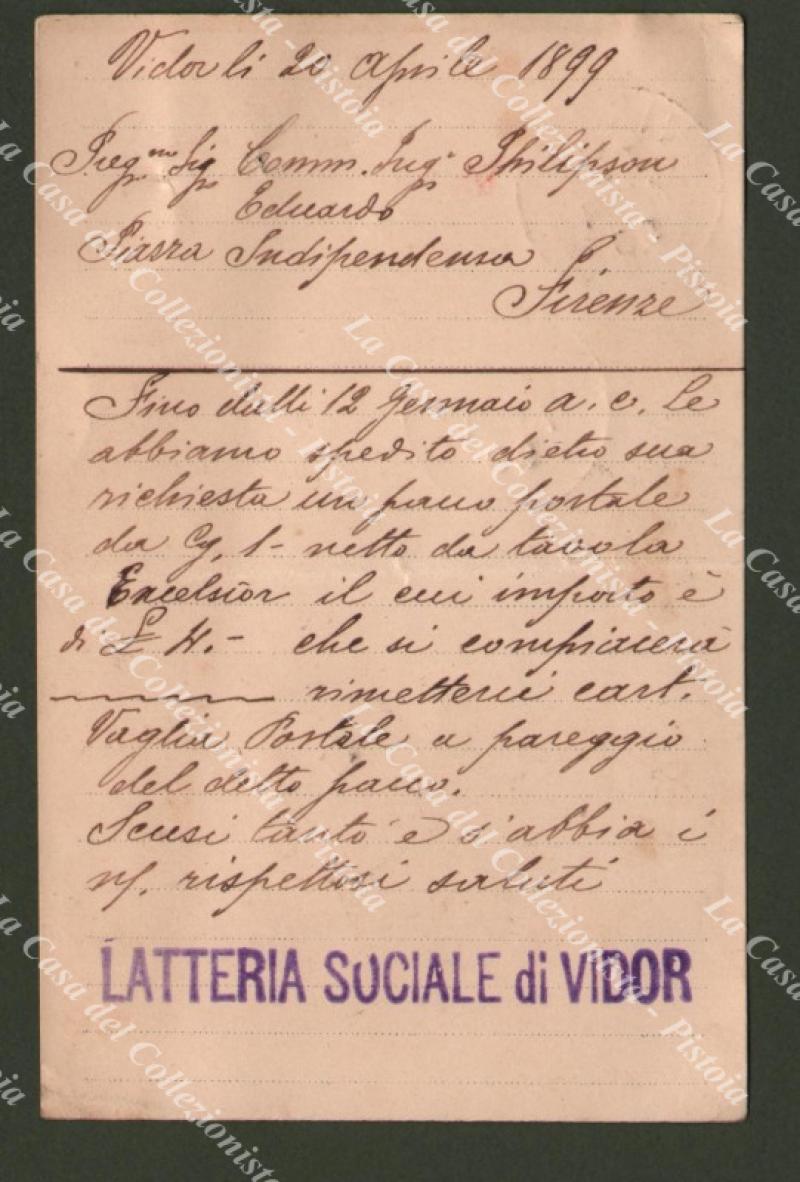 Vidor li 20 Aprile 1899
Preg.mo Sig Comm. Ing. Philipson
Eduardo
Piazza Indipendensa
Firenze
Fino dalli 12 Gennaio a. c. Le
abbiamo spedito dietro sua
richiesta un pacco postale
da Cg. 1- netto da tavola
Excelsior il cui importo è
di £ 4.- che si compiacerà
rimetterci cart.
Vaglia Postale a pareggio
del detto pacco.
Scusi tanto e s'abbia i
ns/. rispettosi saluti
LATTERIA SOCIALE di VIDOR
La Casa del Collezionista - Pistoia